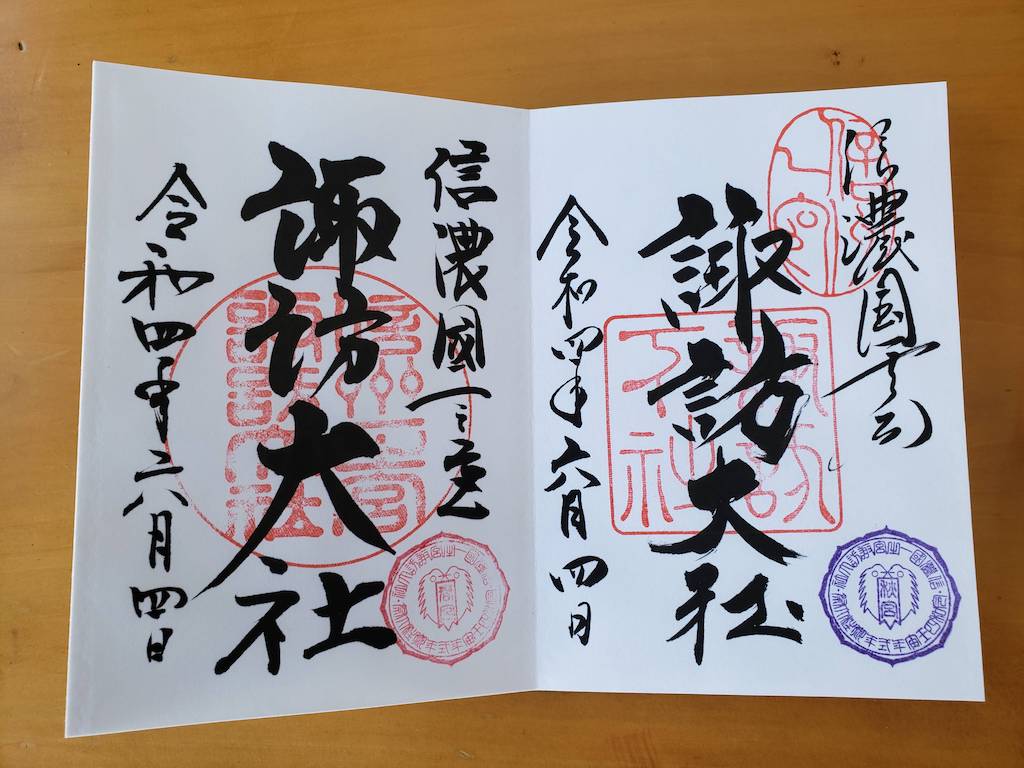 信濃国一之宮
諏訪大社
諏訪下社
令和四年六月四日
秋宮
信濃國一之宮
諏訪大社
令和四年六月四日